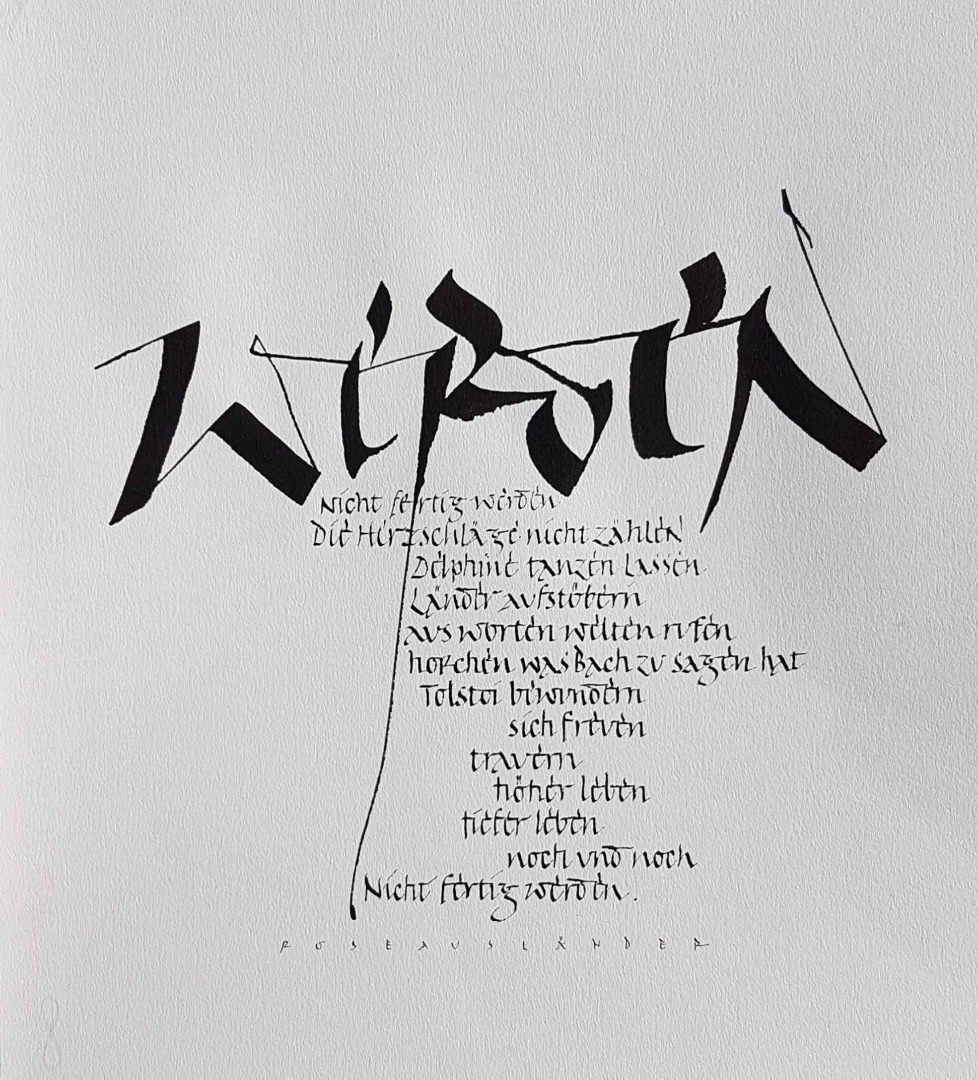 werden
Nicht fertig werden
Die Herzschläge nicht zählen
Delphine tanzen lassen
Länder aufstöbern
aus worten welten rufen
horchen was Bach zu sagen hat
Tolstoi bewundern
sich freuen
trauern
höher leben
tiefer leben
noch und noch
Nicht fertig werden.
ROSE AUSLÄNDER